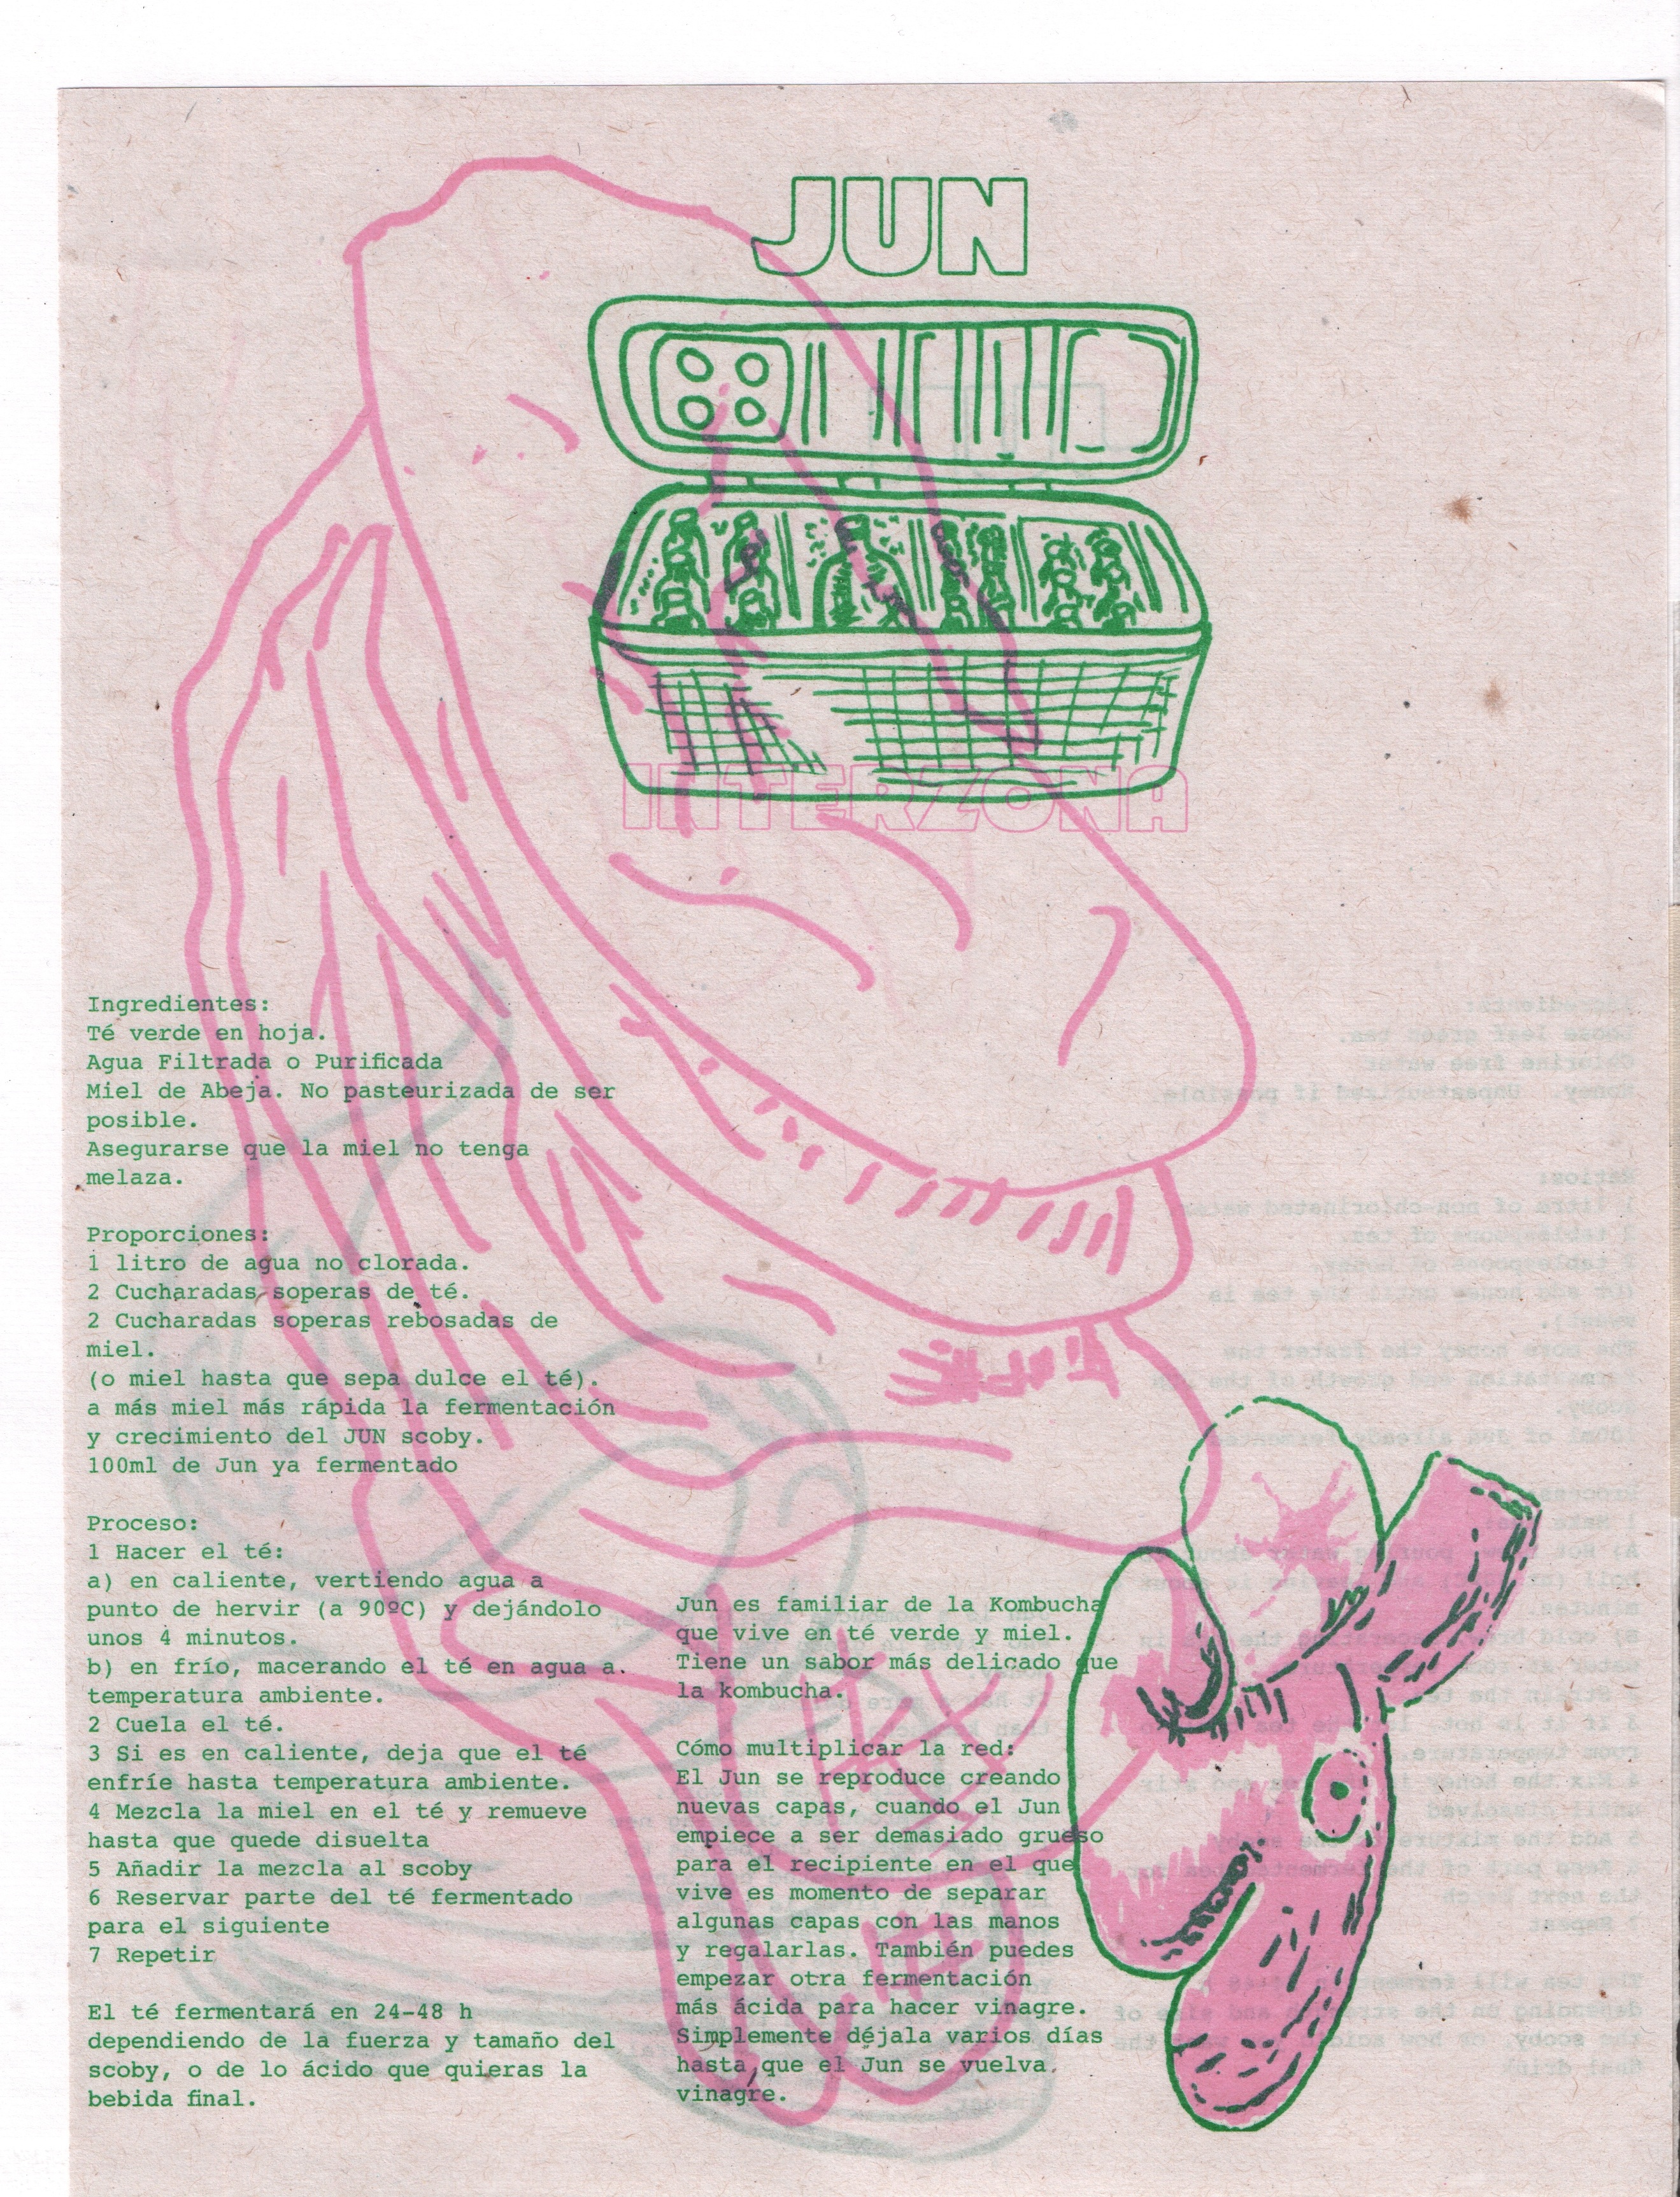 JUN
INTERZONA
Ingredientes:
Té verde en hoja.
Agua Filtrada o Purificada
Miel de Abeja. No pasteurizada de ser
posible.
Asegurarse que la miel no tenga
melaza.
Proporciones:
1 litro de agua no clorada.
2 Cucharadas soperas de té.
2 Cucharadas soperas rebosadas de
miel.
(o miel hasta que sepa dulce el té).
a más miel más rápida la fermentación
y crecimiento del JUN scoby.
100ml de Jun ya fermentado
Proceso:
1 Hacer el té:
a) en caliente, vertiendo agua a
punto de hervir (a 90ºC) y dejándolo
unos 4 minutos.
b) en frío, macerando el té en agua a.
temperatura ambiente.
2 Cuela el té.
3 Si es en caliente, deja que el té
enfríe hasta temperatura ambiente.
4 Mezcla la miel en el té y remueve
hasta que quede disuelta
5 Añadir la mezcla al scoby
6 Reservar parte del té fermentado
para el siguiente
7 Repetir
El té fermentará en 24-48 h
dependiendo de la fuerza y tamaño del
scoby, o de lo ácido que quieras la
bebida final.
Jun es familiar de la Kombucha
que vive en té verde y miel.
Tiene un sabor más delicado que
la kombucha.
Cómo multiplicar la red:
El Jun se reproduce creando
nuevas capas, cuando el Jun
empiece a ser demasiado grueso
para el recipiente en el que
vive es momento de separar
algunas capas con las manos
y regalarlas. También puedes
empezar otra fermentación
más ácida para hacer vinagre.
Simplemente déjala varios días
hasta que el Jun se vuelva
vinagre.